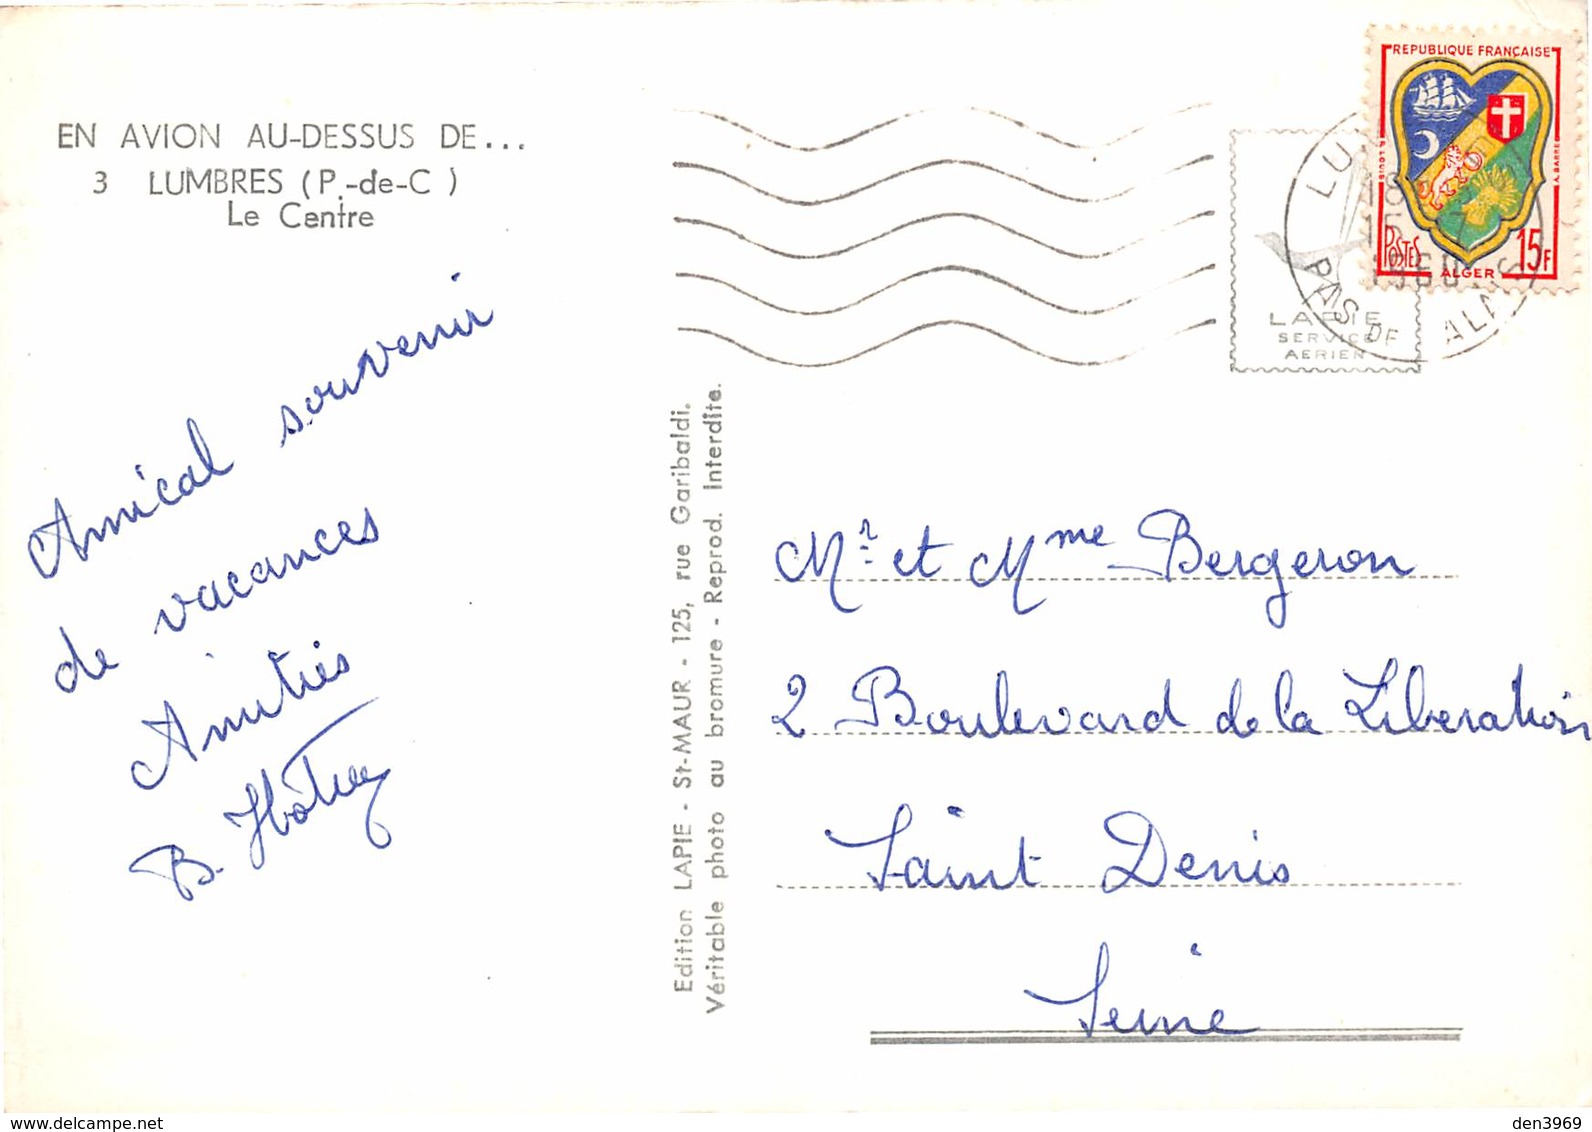 EN AVION AU-DESSUS DE...
3 LUMBRES (P.-de-C )
Le Centre
Amical souvenir
de vacances
Amitiés
B.
Edition LAPIE - St-MAUR - 125, rue Garibaldi.
Véritable photo au bromure - Reprod. Interdite.
REPUBLIQUE FRANÇAISE
POSTES
ALGER
15F
LAPIE
SERVICE
AERIEN
PAS DE
1960
Mr et Mme Bergeron
2 Boulevard de la Liberation
Saint Denis
Seine
den3969